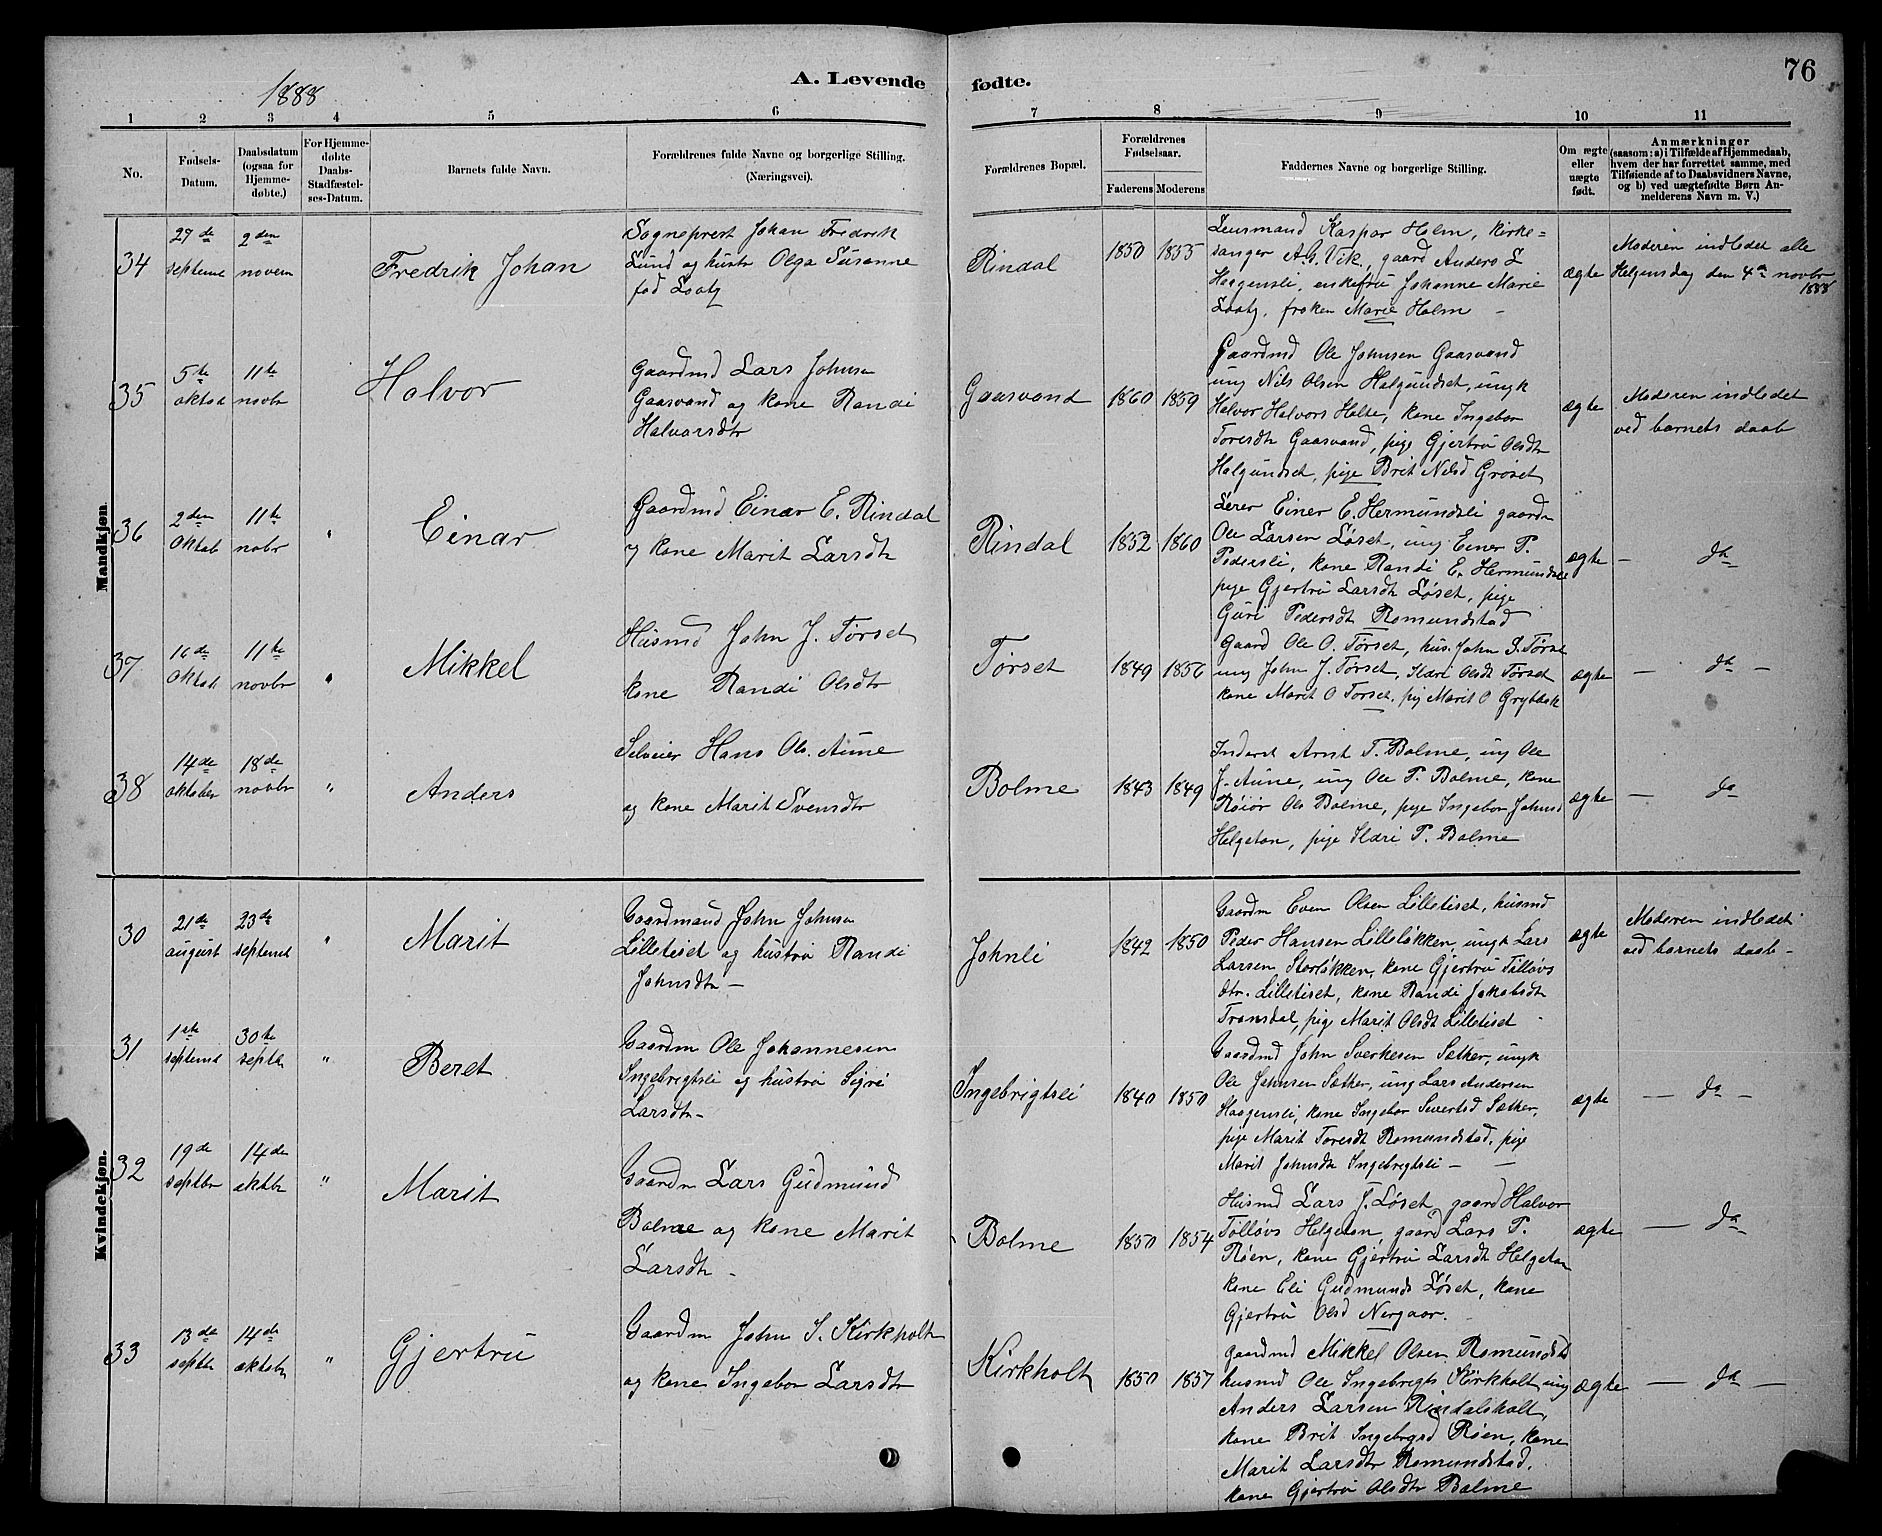 1888
A. Levende
fødte.
76
1 2 3 4 5 6 7 8 9 10 11
No.
Fødsels-Datum.
Daabsdatum (ogsaa for Hjemmedøbte.)
For Hjemmedøbte Daabs-Stadfæstelses-Datum.
Barnets fulde Navn.
Forældrenes fulde Navne og borgerlige Stilling.
(Næringsvei).
Forældrenes Bopæl.
Forældrenes Fødselsaar.
Faderens Moderens
Faddernes Navne og borgerlige Stilling.
Om ægte eller uægte født.
Anmærkninger
(saasom: a) i Tilfælde af Hjemmedaab, hvem der har forrettet samme, med Tilføiende af to Daabsvidners Navne, og b) ved uægtefødte Børn Anmelderens Navn m. V.)
Mandkjøn.
34
septemt novem
Fredrik Johan
Sogneprest Johan Fredrik
Lund og hustr Olga Susanne
Rindal
1850 1855
Lensmand Kaspar Holm, kirke=
sanger A.G. Vik, gaard Anders L
Haagensli, enkefru Johanne Marie
frøken Marie Holm –
ægte
Moderen indledet alle
Helgensdag den 4de novbr
1888
35
5te 11te
oktob novbr
Halvor
Gaardmd Lars Johnsen
Gaasvand og kone Randi
Halvorsdtr
Gaasvand
1860 1859
Gaardmd Ole Johnsen Gaasvand
ung Nils Olsen Halgundset, ungk
Halvor Halvors Holte, kone Ingebor
Toresdtr Gaasvand, pige Gjertru Olsdtr
Halgundset, pige Brit Nilsd Grøset
ægte
Moderen indledet
ved barnets daab
36
2den 11te
oktob nobr
Einar
Gaardmd Einar E. Rindal
og kone Marit Larsdtr
Rindal
1852 1860
Lerer Einer E. Hermundsli gaardm
Ole Larsen Løset, ung Einer P.
Pedersli, kone Randi E. Hermundsli
pige Gjertru Larsdtr Løset, pige
Guri Pedersdt Romundstad
ægte
– do
37
16de 11te
oktob novbr
Mikkel
Husmd John J. Tørset
kone Randi Olsdtr
Tørset
1849 1856
Gaard Ole O. Tørset, hus. John I. Tørset
ung John J. Tørset, Ildri Olsdt Tørset
kone Marit O Tørset, pig Marit O Grytbak
ægte
– do –
38
14de 18de
oktober novbr
"
Anders
Selveier Hans Ols. Aune
og kone Marit Svensdtr
Bolme
1843 1849
Inderst Arnt T. Bolme, ung Ole
J. Aune, ung Ole P. Bolme, kone
Ols Bolme, pige Ingebor Johnsd
Helgeton, pige Ildri P. Bolme
ægte
– do
Kvindekjøn.
30
21de 23de
august septemt
"
Marit
Gaardmand John Johnsen
Lilletiset og hustru Randi
Johnsdtr –
Johnli
1842 1850
Gaardm Even Olsen Lilletiset, husmd
Peder Hansen Lilleløkken, ungk Lars
Larsen Storløkken, kone Gjertru Tølløvs
dtr. Lilletiset, kone Randi Jakobsdt
Tronsdal, pige Marit Olsdt Lilletiset
ægte
Moderen indledet
ved barnets daab –
31
1ste 30te
septemt septbr
"
Beret
Gaardm Ole Johannesen
Ingebrigtsli og hustru Sigri
Larsdtr –
Ingebrigtsli
1840 1850
Gaardmd John Sverkesen Sæther, ungk
Ole Johnsen Sæther, ung Lars Andersen
Haagensli, kone Ingebor Sivertsd Sæther,
pige Marit Toresdt Romundstad, pige
Marit Johnsdt Ingebrigtsli –
ægte
– do –
32
19de 14de
septbr oktbr
"
Marit
Gaardm Lars Gudmund
Bolme og kone Marit
Larsdtr –
Bolme
1850 1854
Husmd Lars J. Løset, gaard Halvor
Tølløvs Helgeton, gaard Lars P.
Røen, kone Gjertru Larsdt Helgeton
kone Eli Gudmunds Løset, kone
Gjertru Olsd Nergaar.
ægte
– do
33
13de 14de
septbr oktobr
"
Gjertru
Gaardm John S. Kirkholt
og kone Ingebor Larsdtr
Kirkholt
1850 1857
gaardmd Mikkel Olsen Romundstad
husmd Ole Ingebrigts Kirkholt, ung
Anders Larsen Rindalsholt,
kone Brit Ingebrgsd Røen, kone
Marit Larsdtr Romundstad,
kone Gjertru Olsdtr Bolme
ægte
– do –